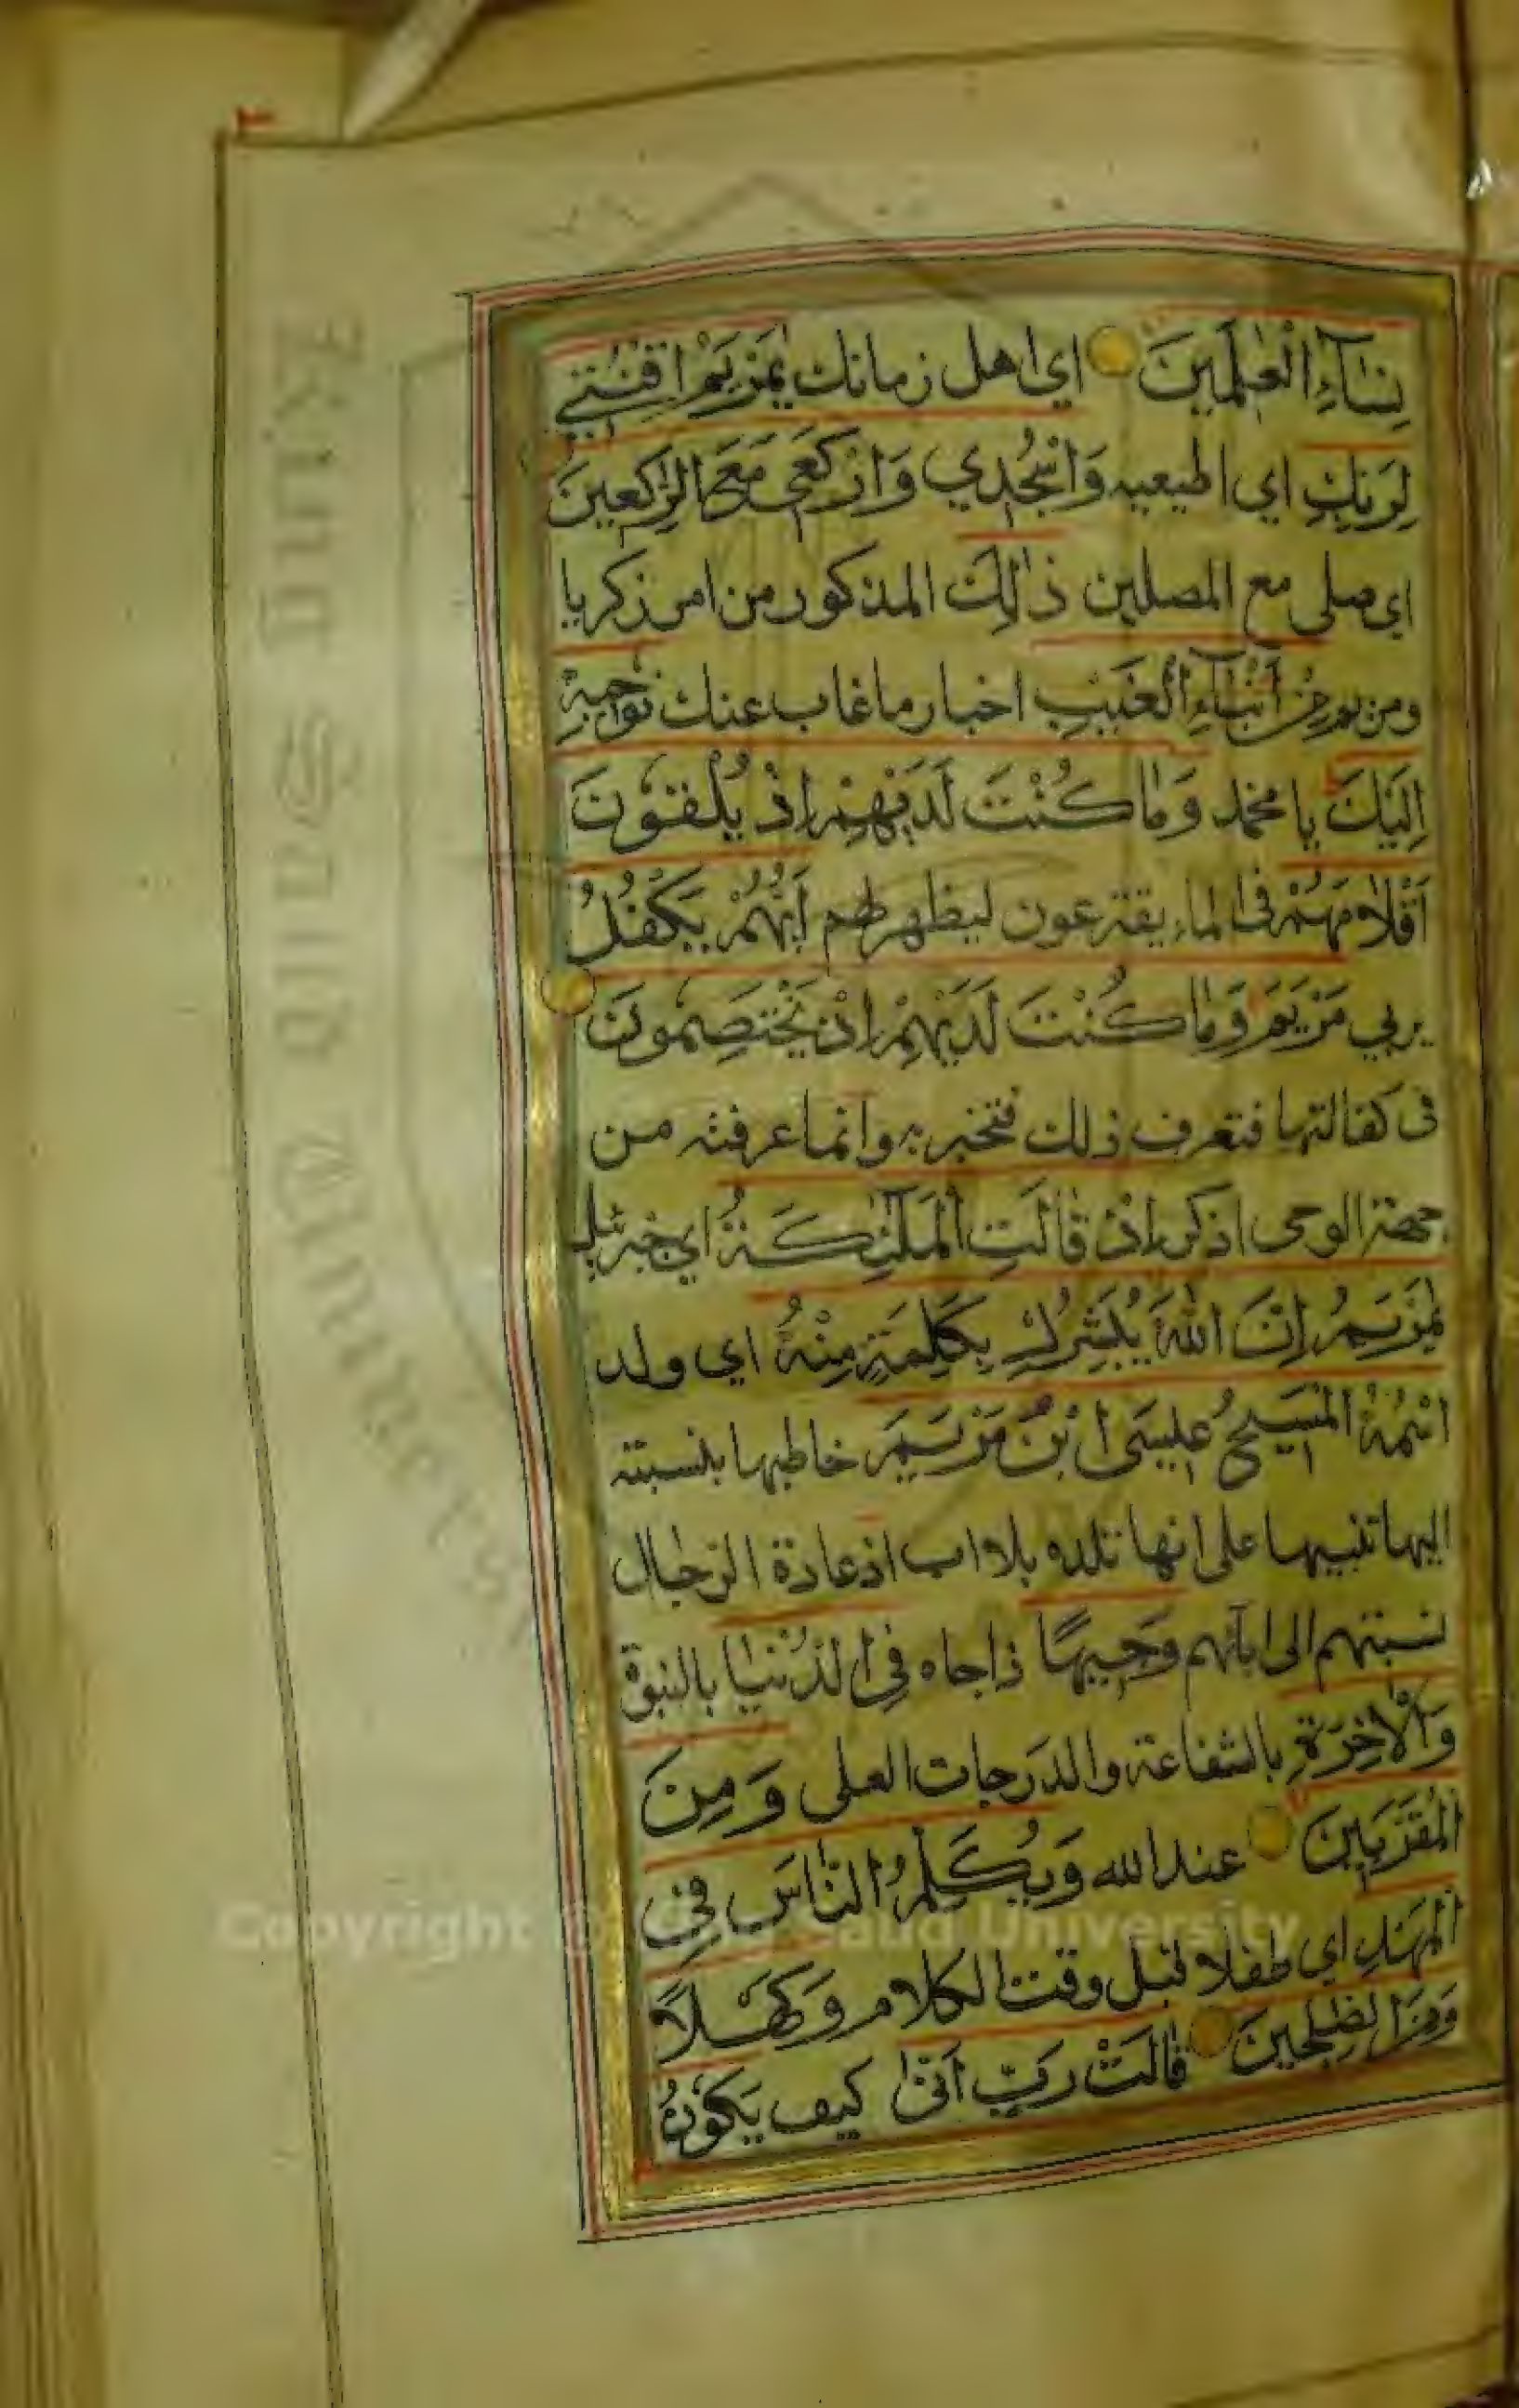 نِسَآءِ الْعٰلَمِينَ اي اهل زمانك يٰمَرْيَمُ اقْنُتِي
لِرَبِّكِ اي اطيعيه وَاسْجُدِي وَارْكَعِي مَعَ الرّٰكِعِينَ
اي صلي مع المصلين ذٰلِكَ المذكور من امر زكريا
ومريم مِنْ اَنْبَآءِ الْغَيْبِ اخبار ما غاب عنك نُوحِيهِ
اِلَيْكَ يا محمد وَمٰا كُنْتَ لَدَيْهِمْ اِذْ يُلْقُونَ
اَقْلٰامَهُمْ في الماء يقترعون ليظهر لهم اَيُّهُمْ يَكْفُلُ
يربي مَرْيَمَ وَمٰا كُنْتَ لَدَيْهِمْ اِذْ يَخْتَصِمُونَ
في كفالتها فتعرف ذلك فتخبر به وانما عرفته من
جهة الوحي اذكر اِذْ قٰالَتِ الْمَلٰٓئِكَةُ اي جبرئيل
يٰمَرْيَمُ اِنَّ اللّٰهَ يُبَشِّرُكِ بِكَلِمَةٍ مِنْهُ اي ولد
اسْمُهُ الْمَسِيحُ عِيسَى ابْنُ مَرْيَمَ خاطبها بنسبته
اليها تنبيها على انها تلده بلا اب اذ عادة الرجال
نسبتهم الى ابآئهم وَجِيهًا ذا جاه فِي الدُّنْيٰا بالنبوة
وَالْاٰخِرَةِ بالشفاعة والدرجات العلى وَمِنَ
الْمُقَرَّبِينَ عند الله وَيُكَلِّمُ النّٰاسَ فِي
الْمَهْدِ اي طفلا قبل وقت الكلام وَكَهْلًا
وَمِنَ الصّٰلِحِينَ قٰالَتْ رَبِّ اَنّٰى كيف يَكُونُ
Copyright © King Saud University